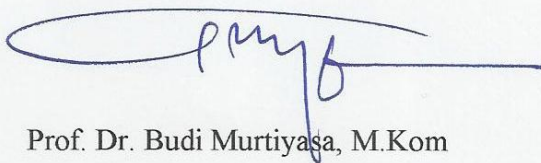 Prof. Dr. Budi Murtiyasa, M.Kom